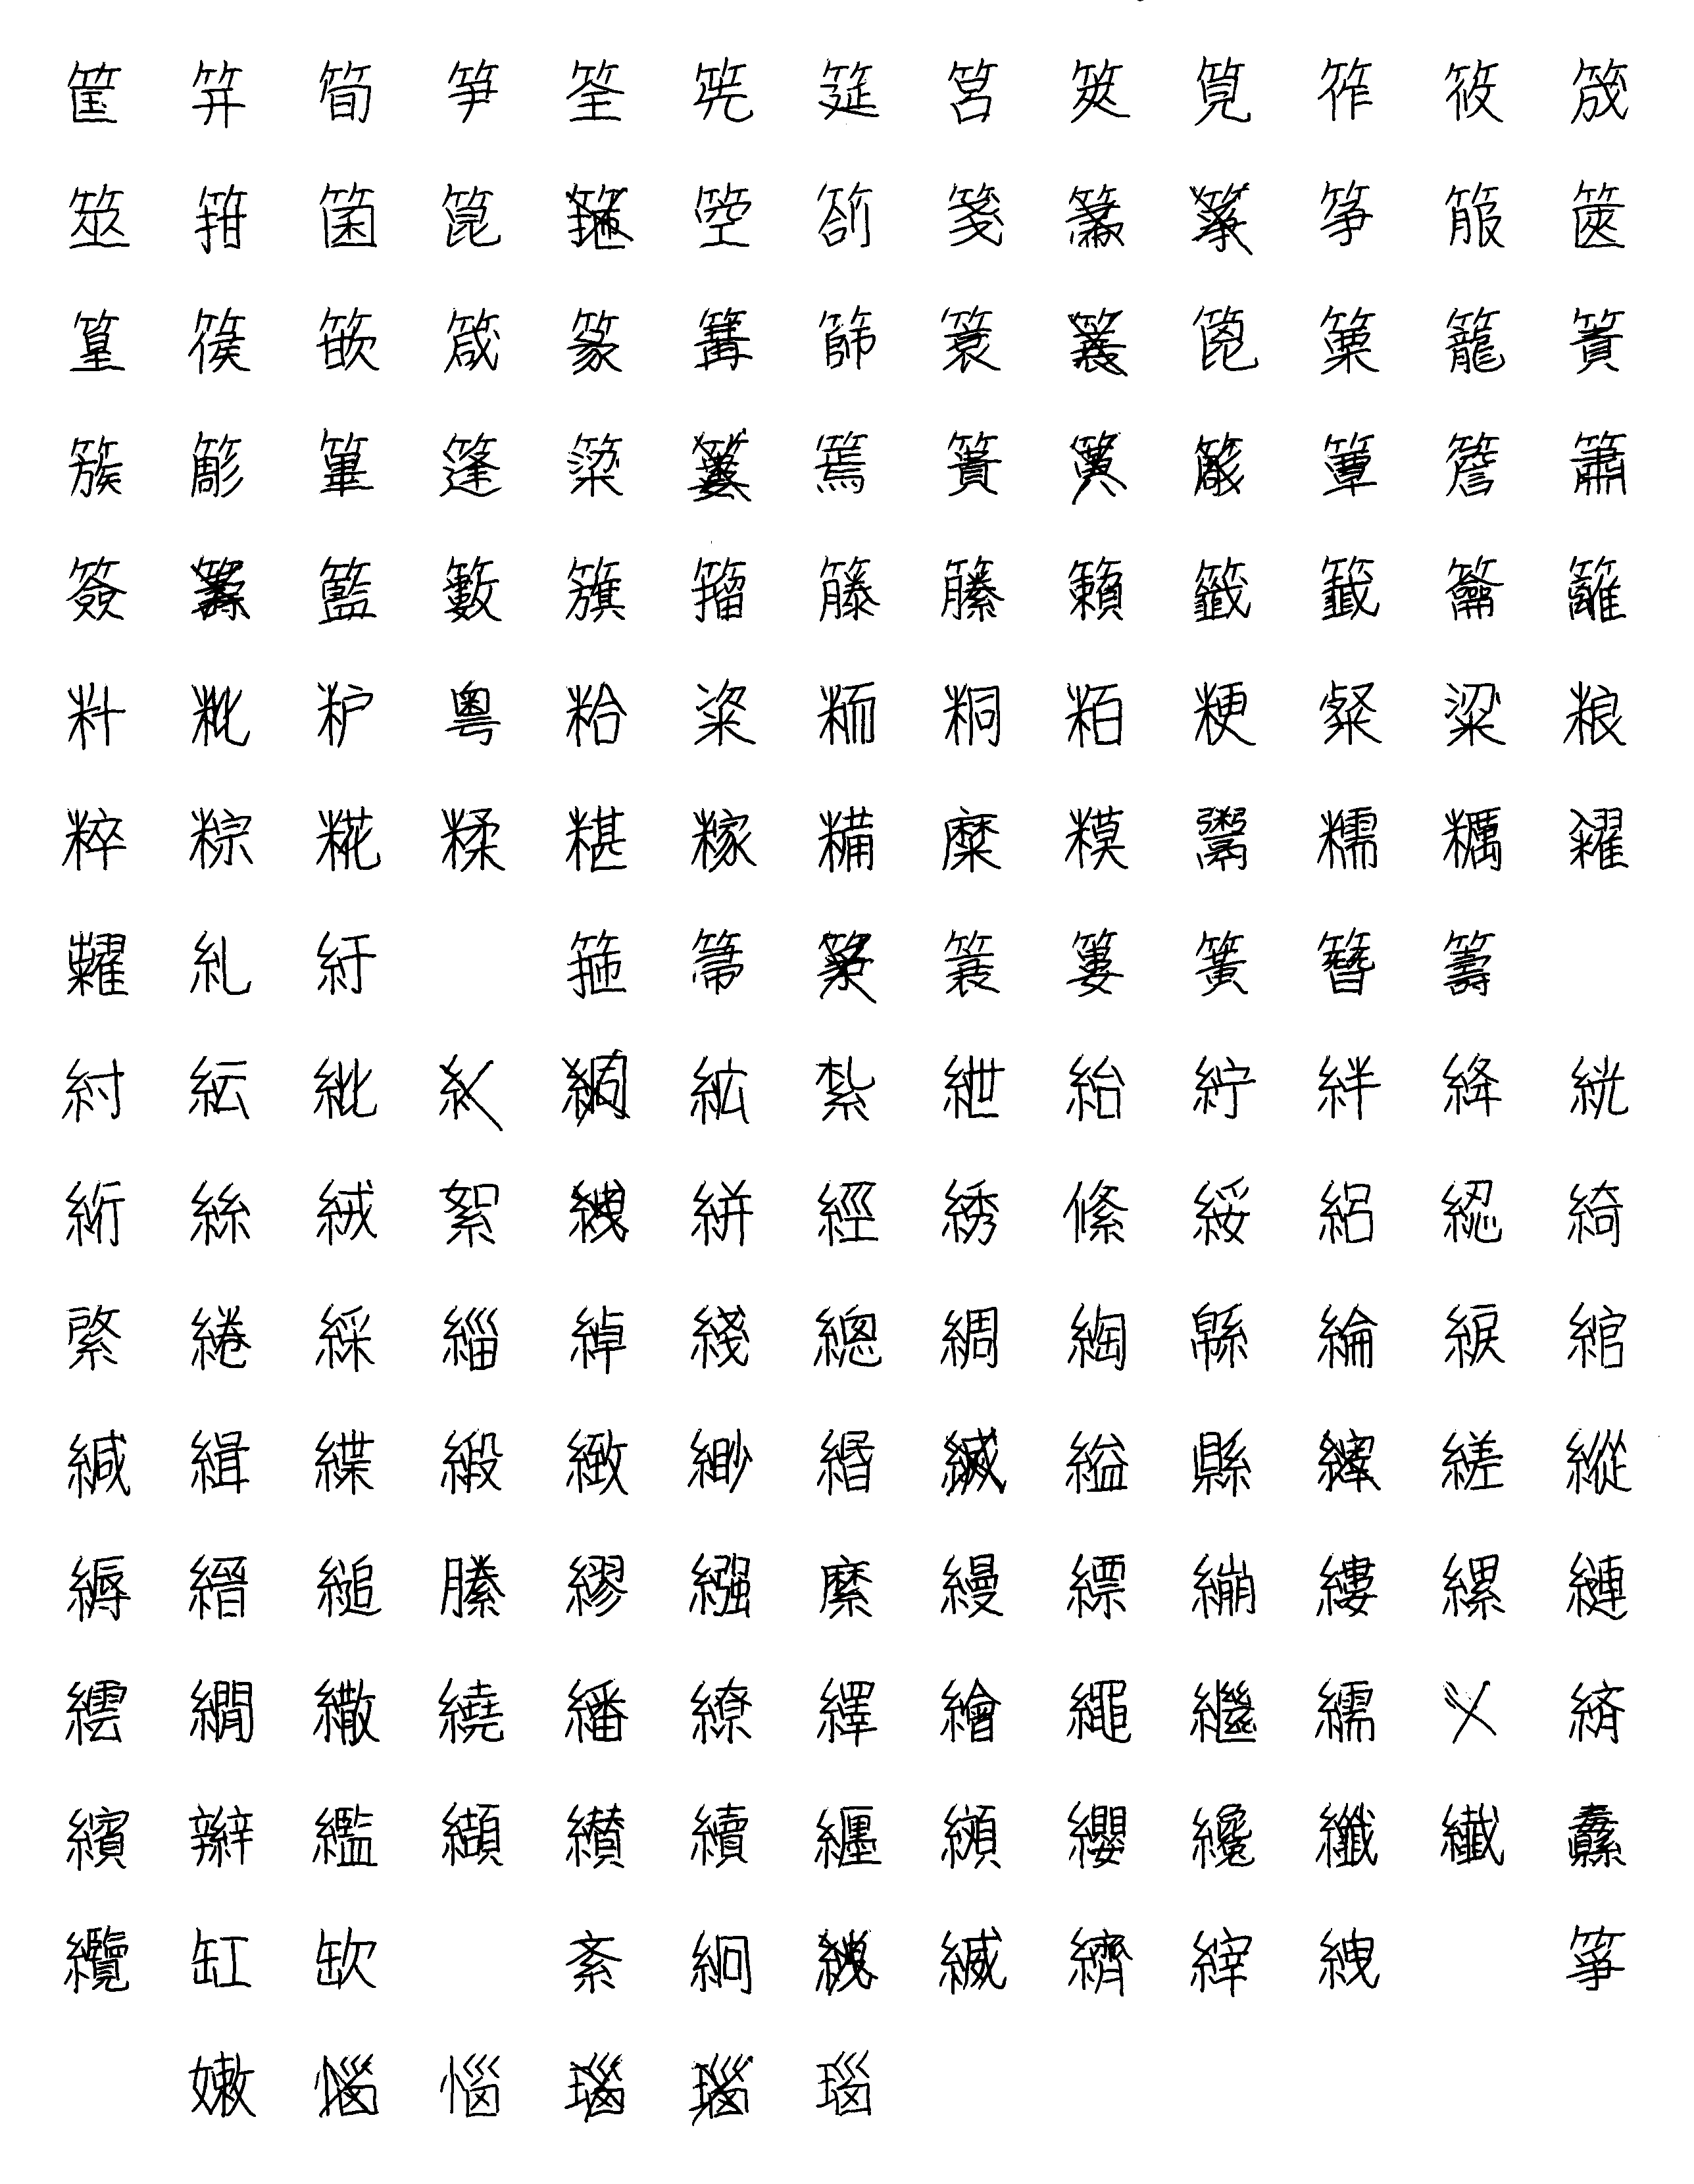 筐 笄 筍 笋 筌 筅 筵 筥 筴 筧 筰 筱 筬
筮 箝 箘 箟 箜 箚 箋 筝 箙 篋
篁 篌 篏 箴 篆 篝 篩 簑 篦 篥 籠 簀
簇 簓 篳 篷 簗 篶 簣 簟 簷 簫
簽 籃 籔 籏 籀 籐 籘 籟 籤 籖 籥 籬
籵 粃 粐 粤 粭 粢 粫 粡 粨 粳 粲 粱 粮
粹 粽 糀 糅 糂 糘 糒 糜 糢 鬻 糯 糲 糴
糶 糺 紆 箍 箒 簔 簍 簧 簪 籌
紂 紜 紕 紘 紮 紲 紿 紵 絆 絳 絖
絎 絲 絨 絮 絣 經 綉 絛 綏 絽 綛 綺
綮 綣 綵 緇 綽 綫 總 綢 綯 緜 綸 綟 綰
緘 緝 緤 緞 緻 緲 緡 縊 縣 縡 縒 縱
縟 縉 縋 縢 繆 繦 縻 縵 縹 繃 縷 縲 縺
繧 繝 繖 繞 繙 繚 繹 繪 繩 繼 繻 緕
繽 辮 繿 纈 纉 續 纒 纐 纓 纔 纖 纎 纛
纜 缸 缺 紊 絅 緘 繻 縡 絏 箏
嫩 惱 瑙